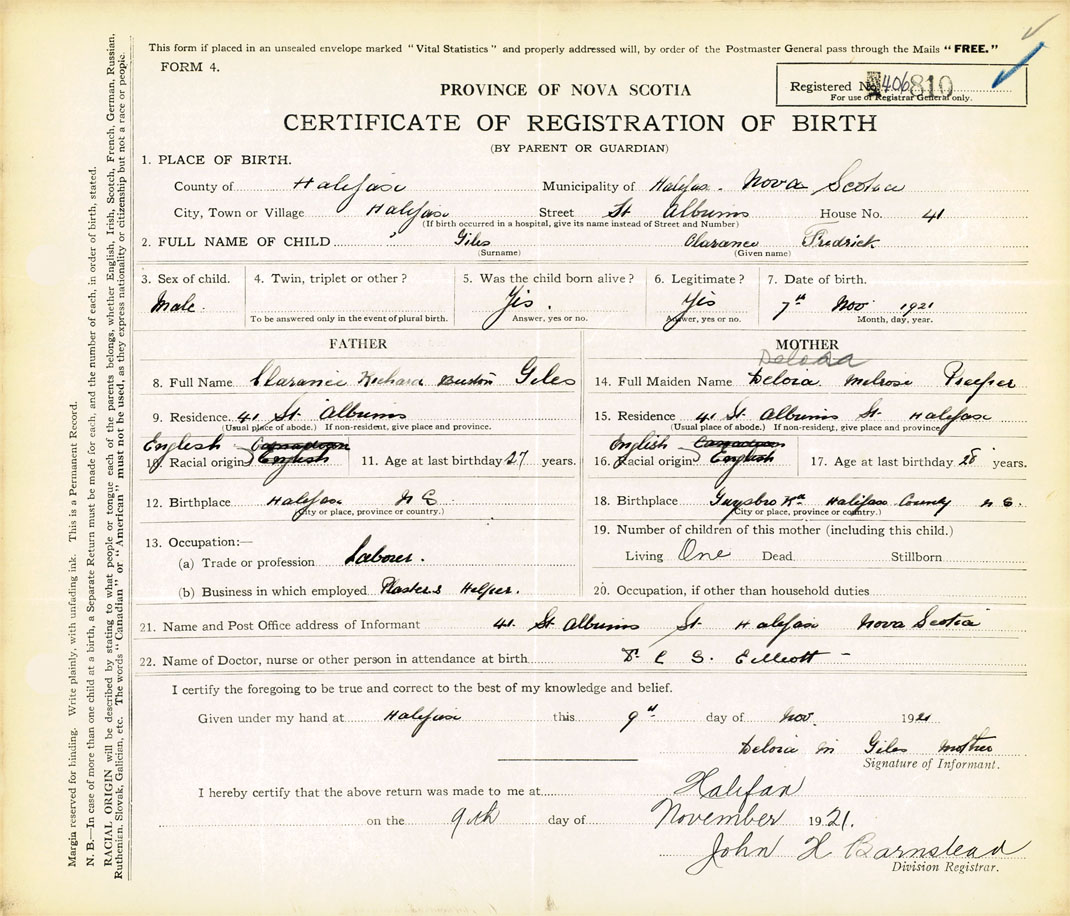 This form if placed in an unsealed envelope marked "Vital Statistics" and properly addressed will, by order of the Postmaster General pass through the Mails "FREE."
FORM 4.
PROVINCE OF NOVA SCOTIA
Registered No. 406 810
For use of Registrar General only.
CERTIFICATE OF REGISTRATION OF BIRTH
(BY PARENT OR GUARDIAN)
1. PLACE OF BIRTH.
County of Halifax Municipality of Halifax. Nova Scotia
City, Town or Village Halifax Street St Albums House No. 41
(If birth occurred in a hospital, give its name instead of Street and Number)
2. FULL NAME OF CHILD Giles Clarance Fredrick
(Surname) (Given name)
3. Sex of child. 4. Twin, triplet or other? 5. Was the child born alive? 6. Legitimate? 7. Date of birth.
Male. Yis. Yis 7th Nov 1921
To be answered only in the event of plural birth. Answer, yes or no. Answer, yes or no. Month, day, year.
FATHER
8. Full Name Clarance Richard Giles
9. Residence 41 St Albums
(Usual place of abode.) If non-resident, give place and province.
English Canadian
10. Racial origin English 11. Age at last birthday 27 years.
12. Birthplace Halifax N S
(City or place, province or country.)
13. Occupation:—
(a) Trade or profession Laborer.
(b) Business in which employed Plasters Helper.
MOTHER
Delora
14. Full Maiden Name Deloia Melrose
15. Residence 41 St Albums St Halifax
(Usual place of abode.) If non-resident, give place and province.
English Canadian
16. Racial origin English 17. Age at last birthday 28 years.
18. Birthplace Guysbro Rd Halifax County N S.
(City or place, province or country.)
19. Number of children of this mother (including this child.)
Living One Dead Stillborn
20. Occupation, if other than household duties
21. Name and Post Office address of Informant 41 St Albums St Halifax Nova Scotia
22. Name of Doctor, nurse or other person in attendance at birth Dr C S. Elliott -
I certify the foregoing to be true and correct to the best of my knowledge and belief.
Given under my hand at Halifax this 9th day of Nov. 1921
Deloia M Giles Mother
Signature of Informant.
I hereby certify that the above return was made to me at Halifax
on the 9th day of November 1921.
John H Barnstead
Division Registrar.
Margin reserved for binding. Write plainly, with unfading ink. This is a Permanent Record.
N. B.—In case of more than one child at a birth, a Separate Return must be made for each, and the number of each, in order of birth, stated.
RACIAL ORIGIN will be described by stating to what people or tongue each of the parents belongs, whether English, Irish, Scotch, French, German, Russian,
Ruthenian, Slovak, Galician, etc. The words "Canadian" or "American" must not be used, as they express nationality or citizenship but not a race or people.